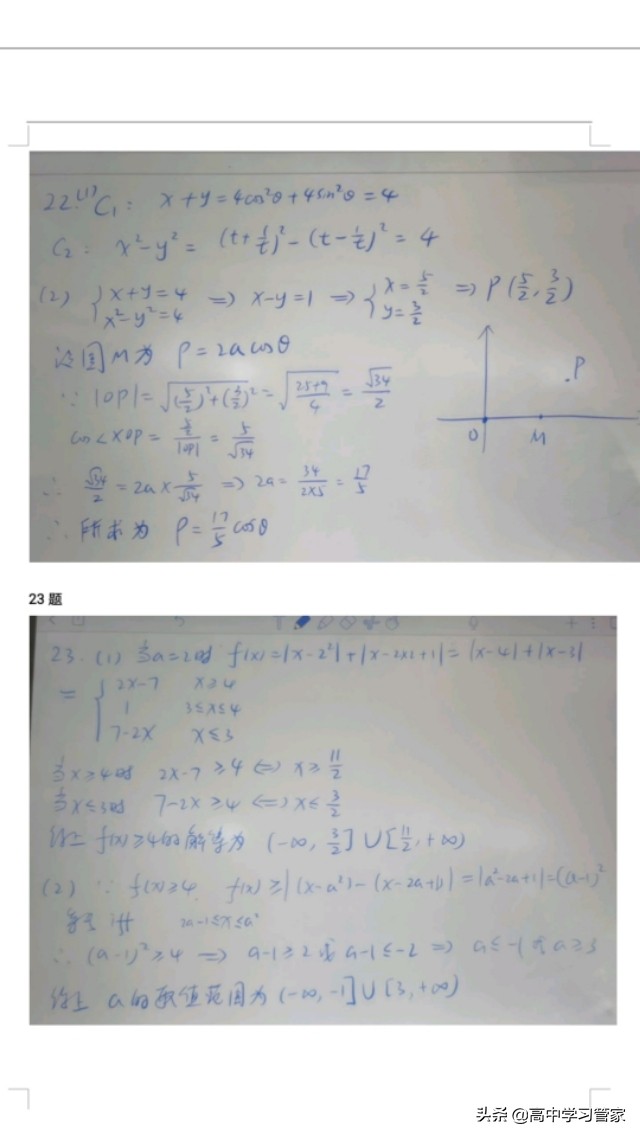 22.(1) C₁: x+y=4cos²θ+4sin²θ=4
C₂: x²-y²=(t+1/t)²-(t-1/t)²=4
(2) { x+y=4 x²-y²=4 => x-y=1 => { x=5/2 y=3/2 => P(5/2, 3/2)
设圆M为 ρ=2acosθ
∵ |OP|=√((5/2)²+(3/2)²)=√((25+9)/4)=√34/2
cos<XOP=(5/2)/|OP|=5/√34
∴ √34/2=2a×5/√34 => 2a=34/(2×5)=17/5
∴ 所求为 ρ=17/5cosθ
P
O M
23 题
23. (1) 当a=2时 f(x)=|x-2²|+|x-2×2+1|=|x-4|+|x-3|
= { 2x-7 x≥4
1 3≤x≤4
7-2x x≤3
当x≥4时 2x-7≥4 <=> x≥11/2
当x≤3时 7-2x≥4 <=> x≤3/2
综上 f(x)≥4的解集为 (-∞, 3/2]∪[11/2, +∞)
(2) ∵ f(x)≥4, f(x)≥|(x-a²)-(x-2a+1)|=|a²-2a+1|=(a-1)²
2a-1≤x≤a²
∴ (a-1)²≥4 => a-1≥2或a-1≤-2 => a≤-1或a≥3
综上 a的取值范围为 (-∞, -1]∪[3, +∞)
头条 @高中学习管家